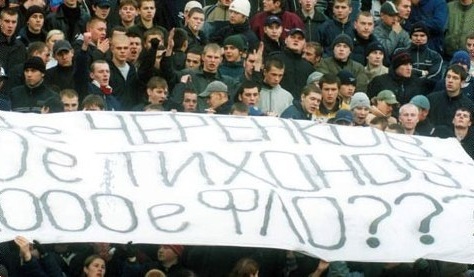 е ЧЕРЕНКОВ
0е ТИХОНОВ
000 е ФЛО??